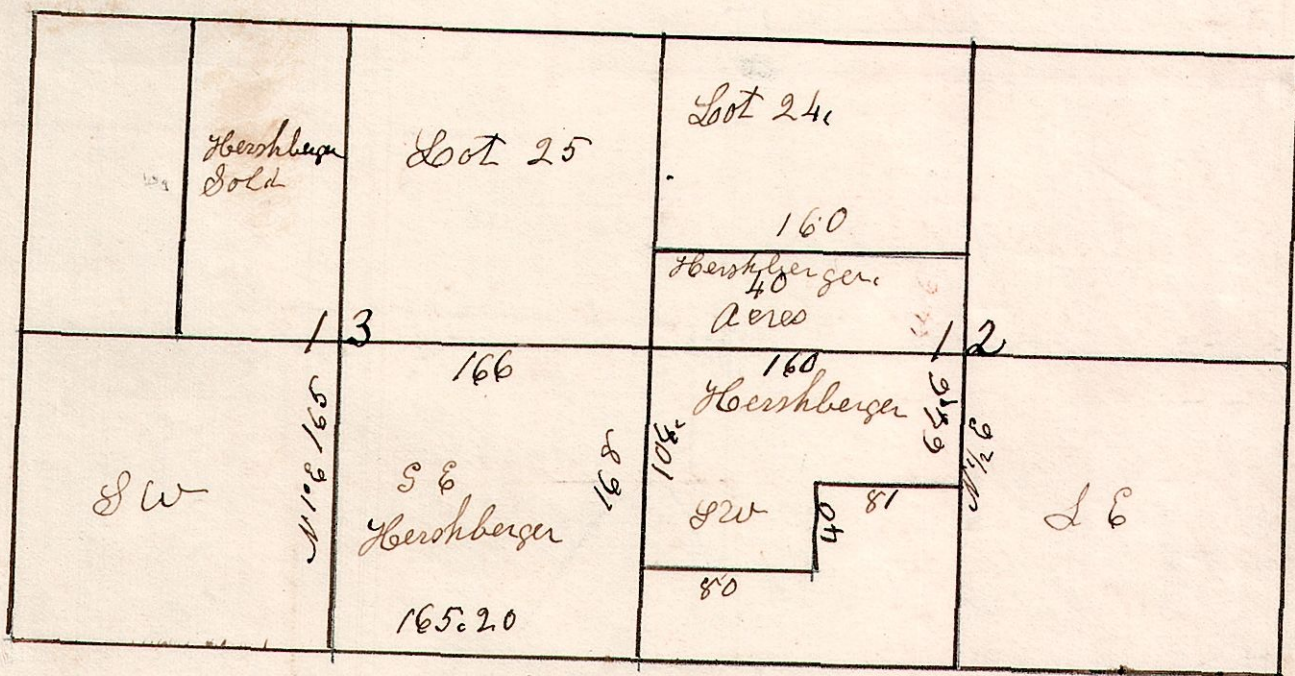 Hershberger
Sold
Lot 25
Lot 24.
160
Hershberger.
40
Acres
13
12
166
160
Hershberger
N 1° E 165
168
104.
SW
S E
Hershberger
SW
40
81
S E
80
165.20